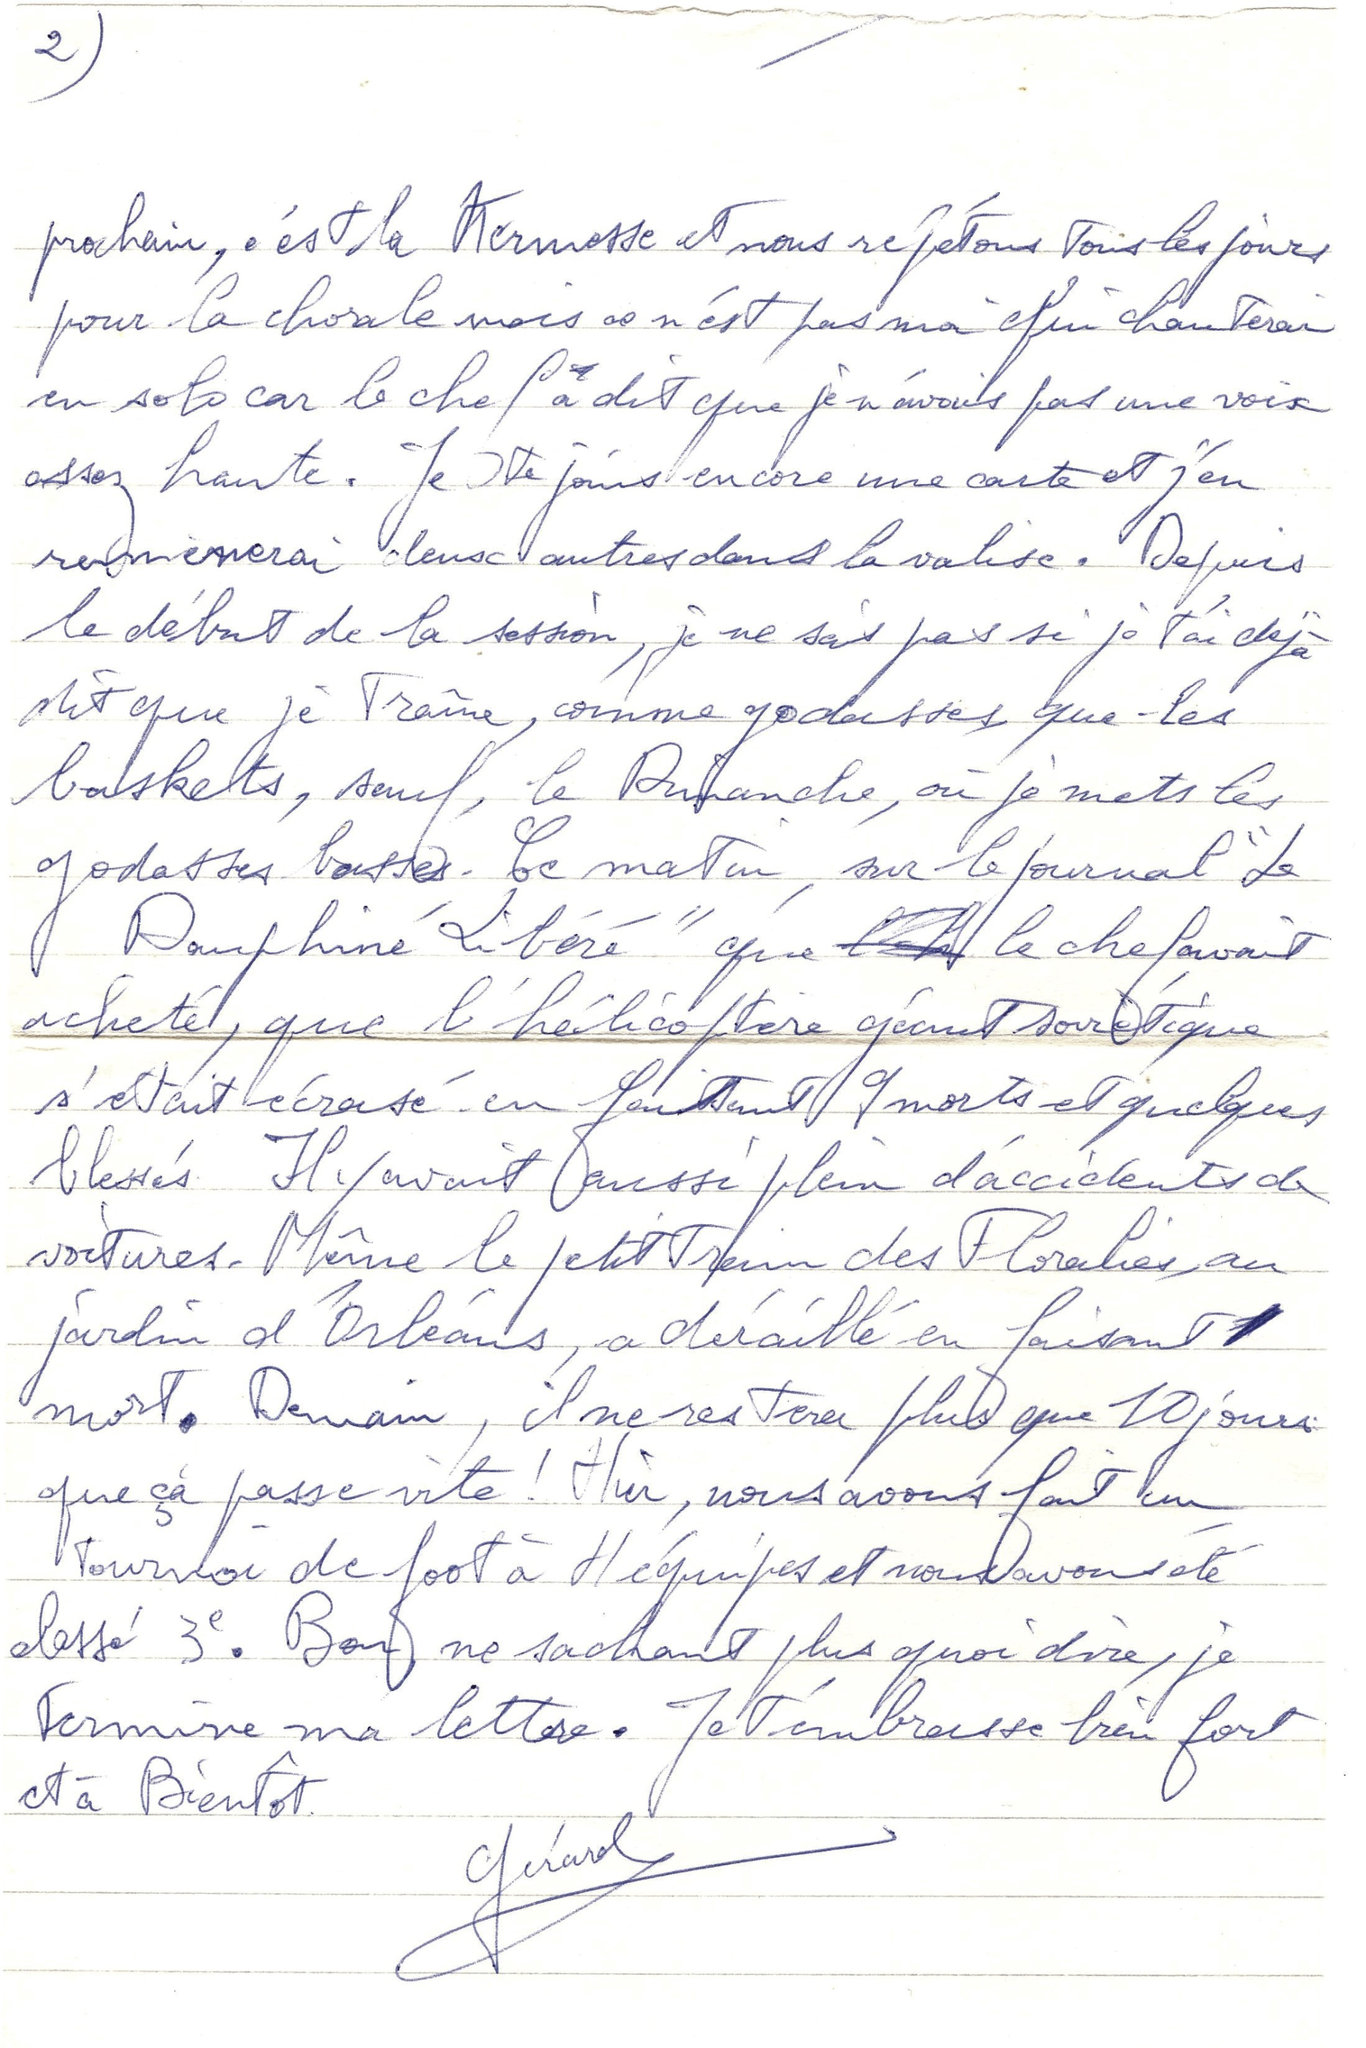 2)
prochain, c'est la Kermesse et nous répétons tous les jours
pour la chorale mais ce n'est pas moi qui chanterai
en solo car le chef a dit que je n'avais pas une voix
assez haute. Je te joins encore une carte et j'en
remmènerai deux autres dans la valise. Depuis
le début de la session, je ne sais pas si je t'ai déjà
dit que je traîne, comme godasses, que les
baskets, sauf, le Dimanche, où je mets les
godasses basses. Ce matin, sur le journal "Le
Dauphiné Libéré" que le chef avait
acheté, que l'hélicoptère géant soviétique
s'était écrasé en faisant 9 morts et quelques
blessés. Il y avait aussi plein d'accidents de
voitures. Même le petit train des Floralies, au
jardin d'Orléans, a déraillé en faisant 1
mort. Demain, il ne restera plus que 10 jours.
que ça passe vite ! Hier, nous avons fait un
tournoi de foot à 4 équipes et nous avons été
classé 3e. Bon, ne sachant plus quoi dire, je
termine ma lettre. Je t'embrasse bien fort
et à Bientôt.
Gérard